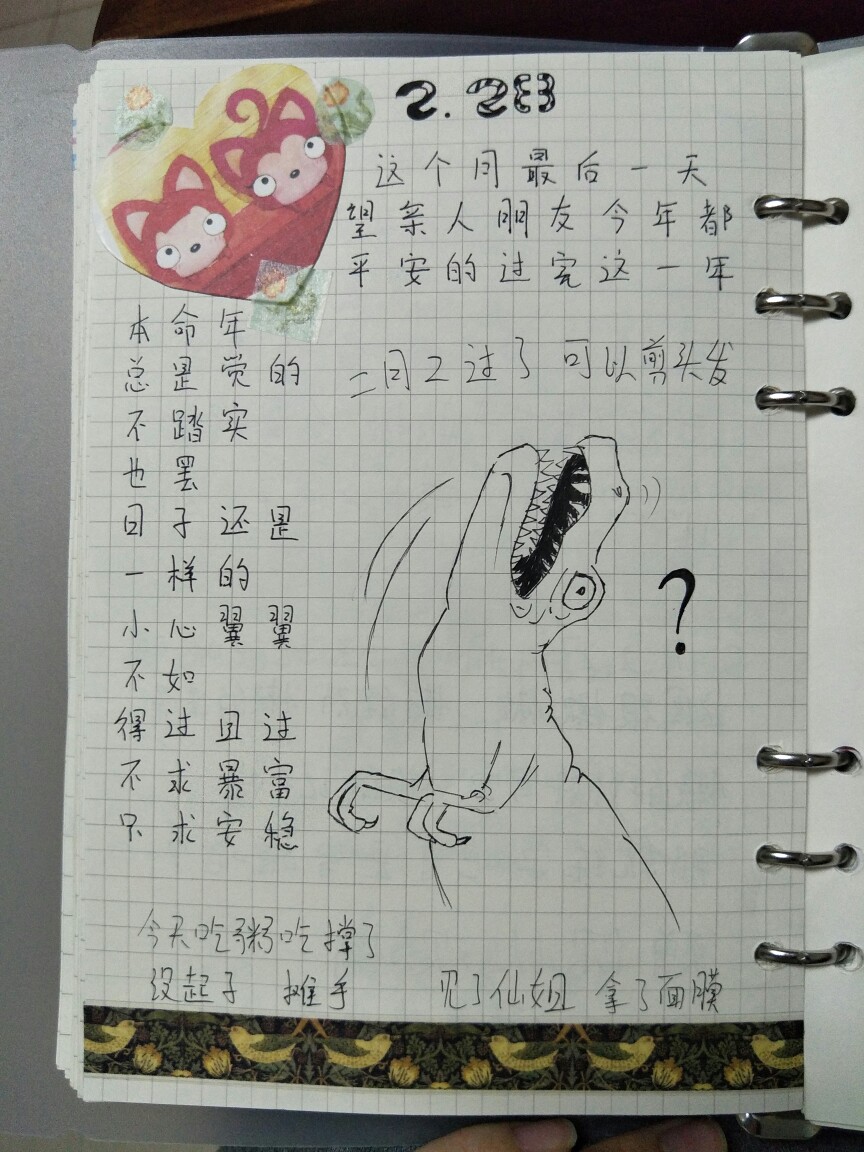 2.28
这个月最后一天
望亲人朋友今年都
平安的过完这一年
二月二过了 可以剪头发
本命年
总是觉的
不踏实
也罢
日子还是
一样的
小心翼翼
不如
得过且过
不求暴富
只求安稳
?
今天吃粥吃撑了
没起子 摊手
见了仙姐 拿了面膜